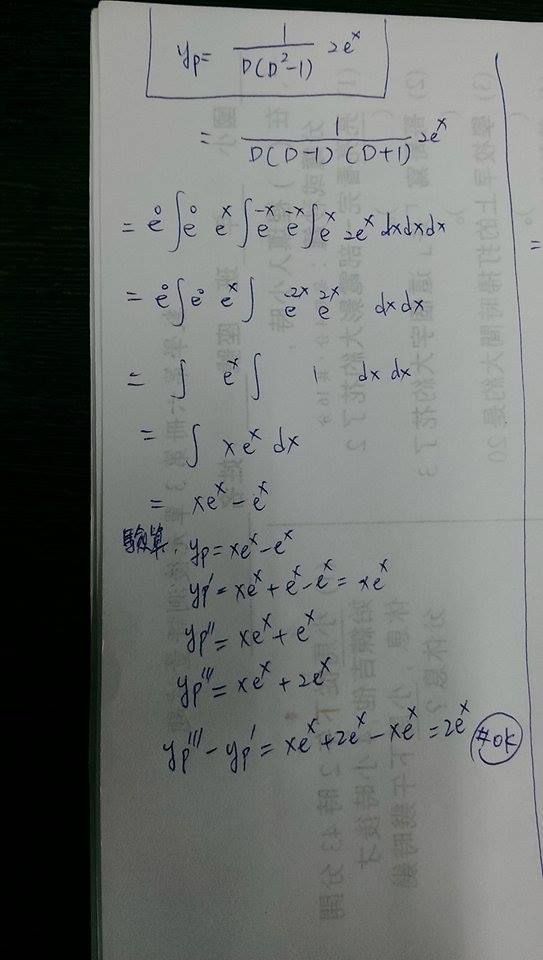 yp = 1/(D(D²-1)) 2eˣ
= 1/(D(D-1)(D+1)) 2eˣ
= e⁰∫e⁰ eˣ∫e⁻ˣ e⁻ˣ∫eˣ 2eˣ dxdxdx
= e⁰∫e⁰ eˣ∫ e⁻²ˣ e²ˣ dxdx
= ∫ eˣ∫ 1 dx dx
= ∫ xeˣ dx
= xeˣ - eˣ
驗算. yp = xeˣ - eˣ
yp' = xeˣ + eˣ - eˣ = xeˣ
yp'' = xeˣ + eˣ
yp''' = xeˣ + 2eˣ
yp''' - yp' = xeˣ + 2eˣ - xeˣ = 2eˣ #ok
=